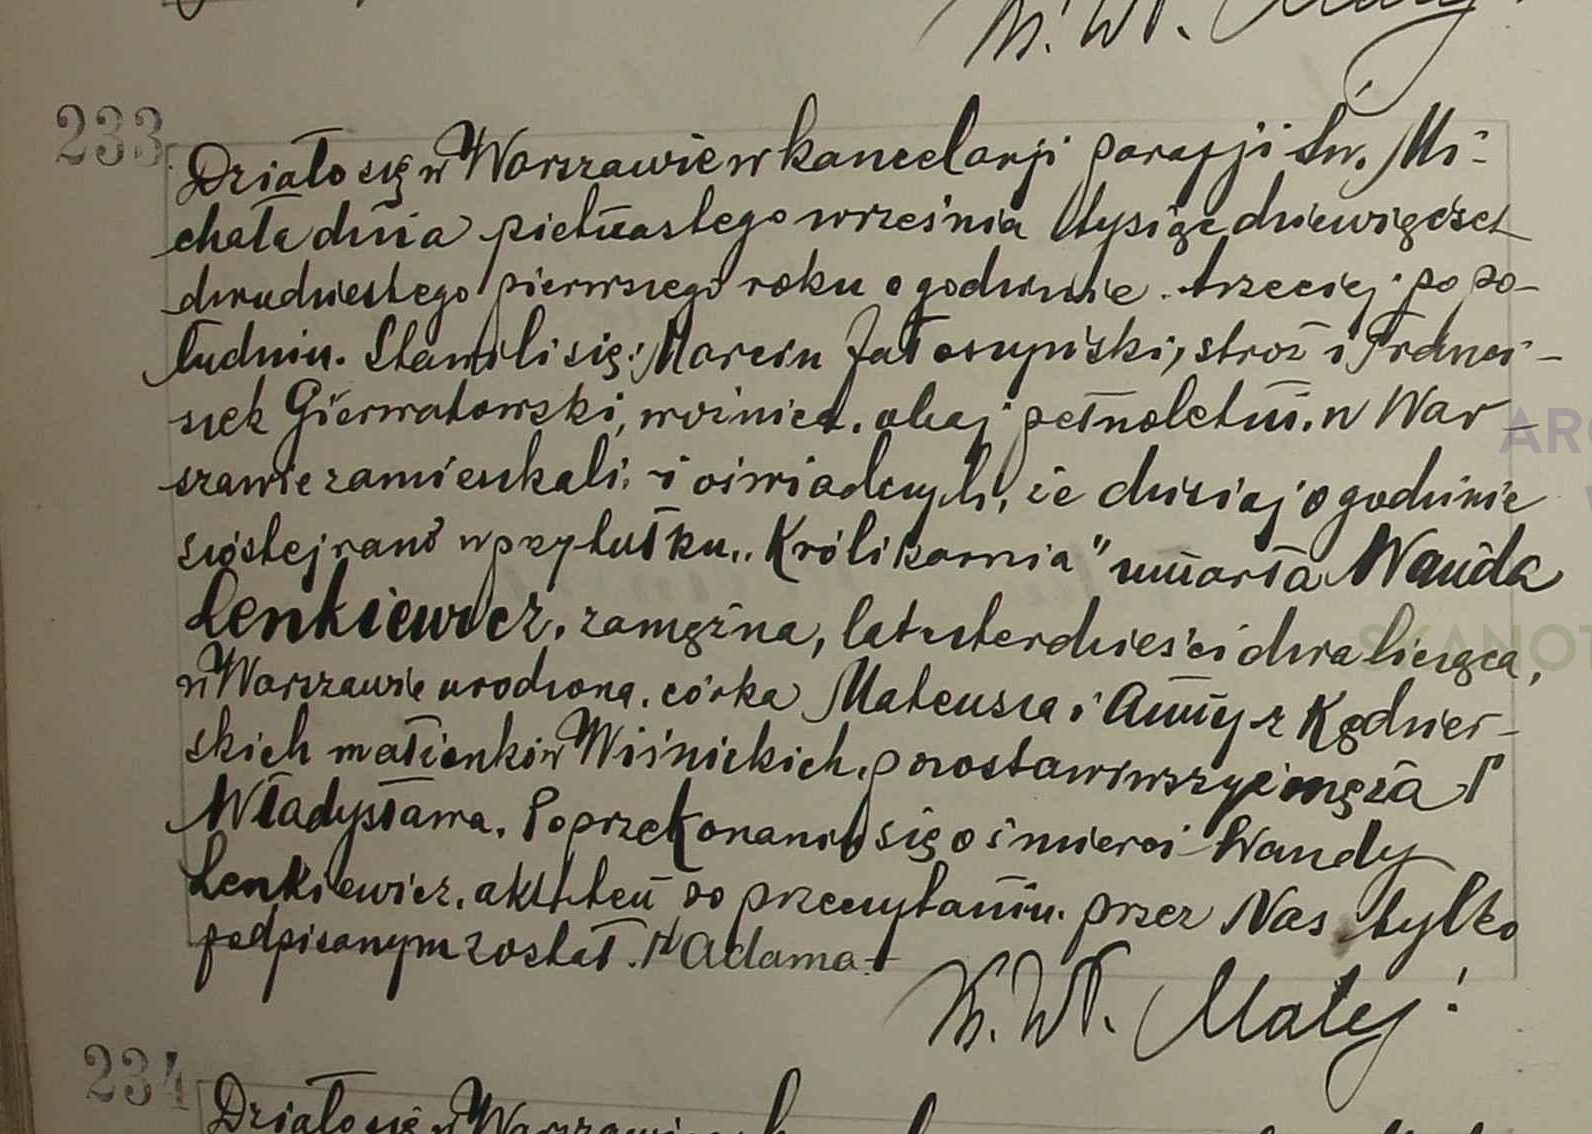 233
Działo się w Warszawie w kancelarji parafji św. Mi-
chała dnia piętnastego września tysiąc dziewięćset
dwudziestego pierwszego roku o godzinie trzeciej po po-
łudniu. Stawili się: Marcin stróż i Franci-
szek Gierwatowski, woźnica, obaj pełnoletni, w War-
szawie zamieszkali, i oświadczyli, że dzisiaj o godzinie
szóstej rano w przytułku "Królikarnia" umarła Wanda
Lenkiewicz, zamężna, lat czterdzieści dwa licząca,
w Warszawie urodzona, córka Mateusza i Anny z Kędzier-
skich małżonków Wiśnickich, pozostawiwszy męża
Władysława. Po przekonaniu się o śmierci Wandy
Lenkiewicz, akt ten po przeczytaniu, przez Nas tylko
podpisanym został. Adama
X. Wł. Matej
234
Działo się w Warszawie